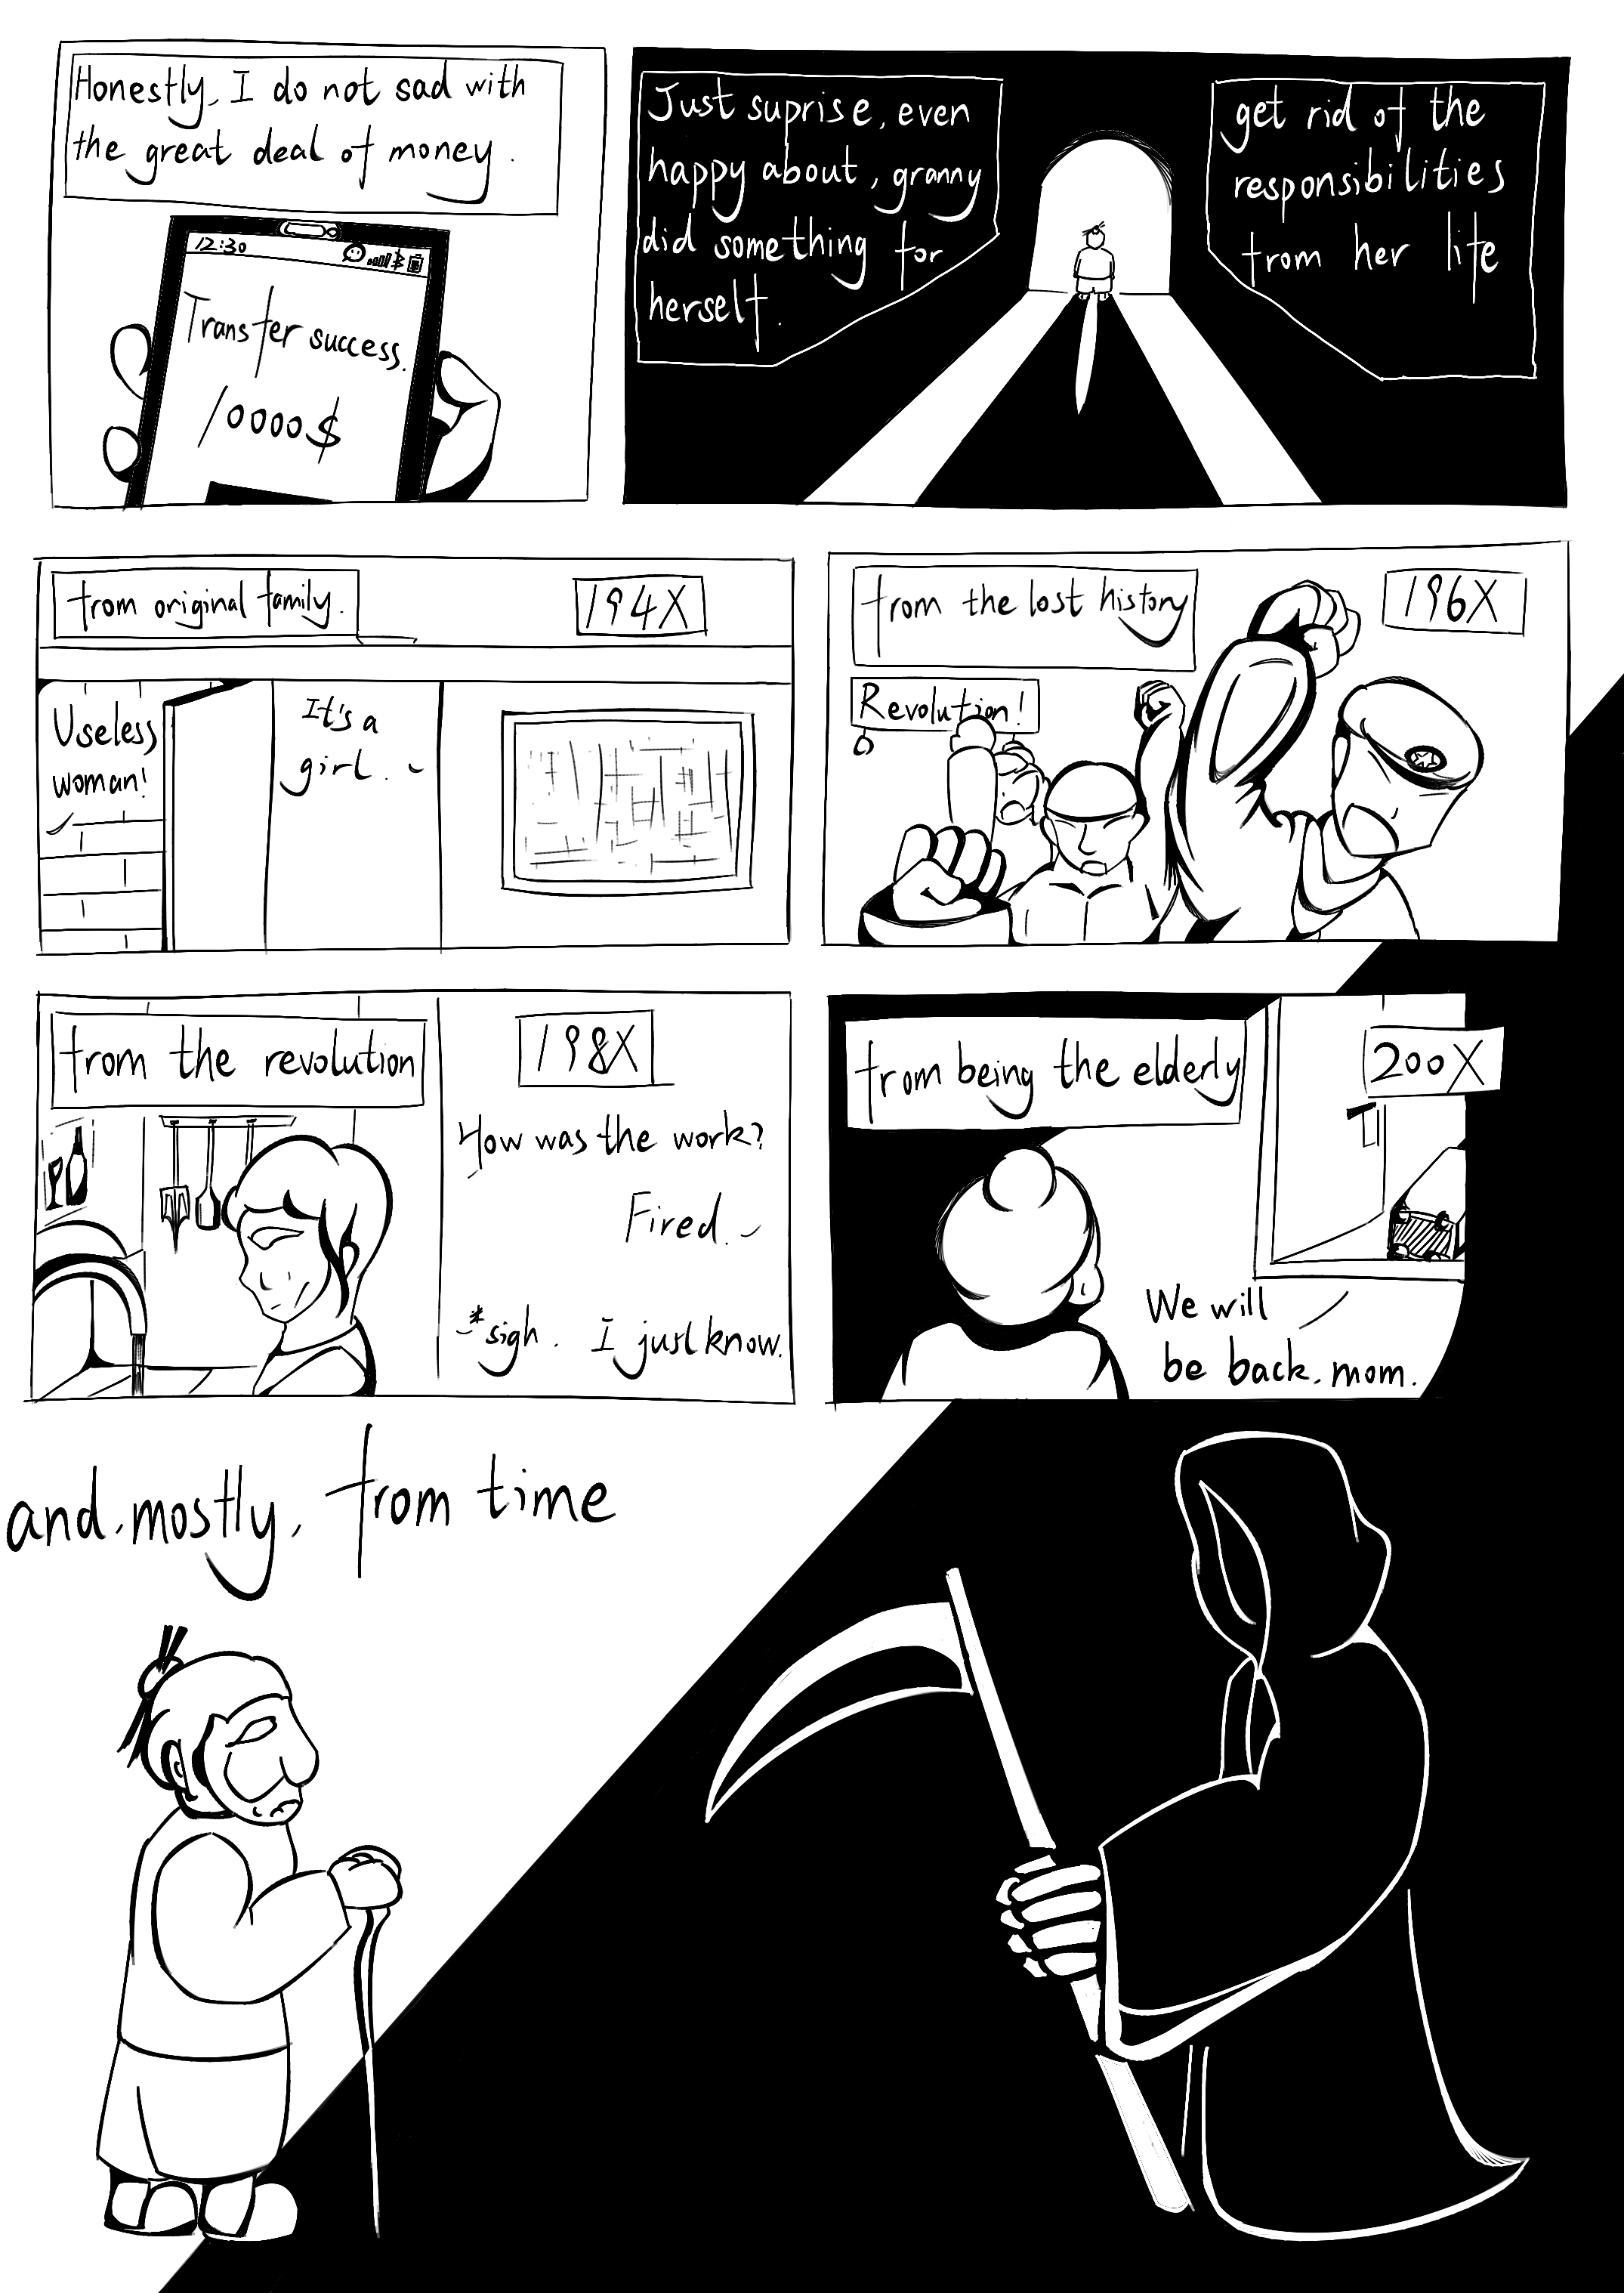 Honestly, I do not sad with
the great deal of money.
12:30
Transfer success.
10000$
Just suprise, even
happy about, granny
did something for
herself.
get rid of the
responsibilities
from her life
from original family.
194X
Useless
woman!
It's a
girl.
from the lost history
196X
Revolution!
from the revolution
198X
How was the work?
Fired.
*sigh. I just know.
from being the elderly
200X
We will
be back, mom.
and, mostly, from time